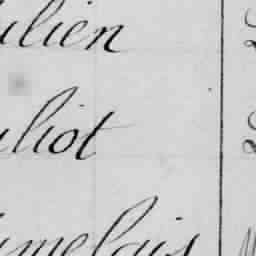 ulien
uliot
umelais